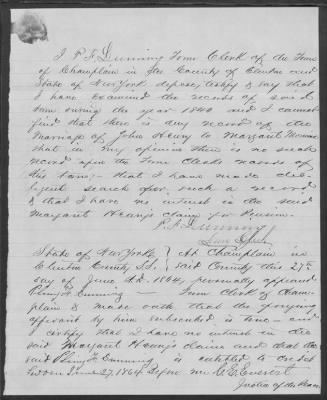 I P. F. Dunning Town Clerk of the Town
of Champlain in the County of Clinton and
State of New York depose, testify & say that
I have examined the records of said
town during the year 1840 and I cannot
find that there is any record of the
Marriage of John Henry to Margaret
that in my opinion there is no such
record upon the Town Clerks records of
this town;- that I have made dil-
igent search for such a record
& that I have no interest in the said
Margaret Henry's claim for Pension.
P. F. Dunning
Town Clerk
State of New York } At Champlain in
Clinton County S.S. } said County this 27th
day of June A.D. 1864, personally appeared
Pliny F. Dunning — Town Clerk of Cham-
plain & made oath that the foregoing
affidavit by him subscribed is true — and
I certify that I have no interest in the
said Margaret Henry's claim and that the
said Pliny F. Dunning is entitled to credit
Sworn June 27, 1864 before me C. E. Everest
Justice of the Peace